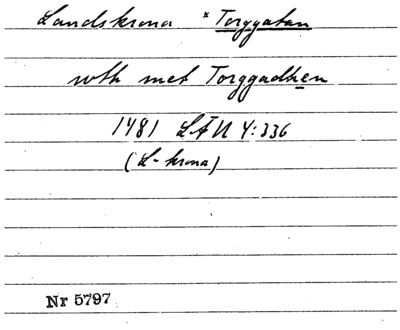 Landskrona * Torggatan
wth met Torggadhen
1481 LÄU 4:336
(L-krona)
Nr 5797